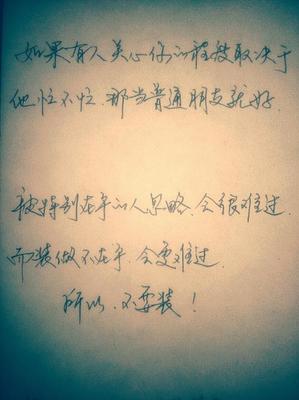 如果有人关心你的程度取决于
他忙不忙.那当普通朋友就好.
被特别在乎的人忽略.会很难过.
而装做不在乎.会更难过.
所以.不要装！